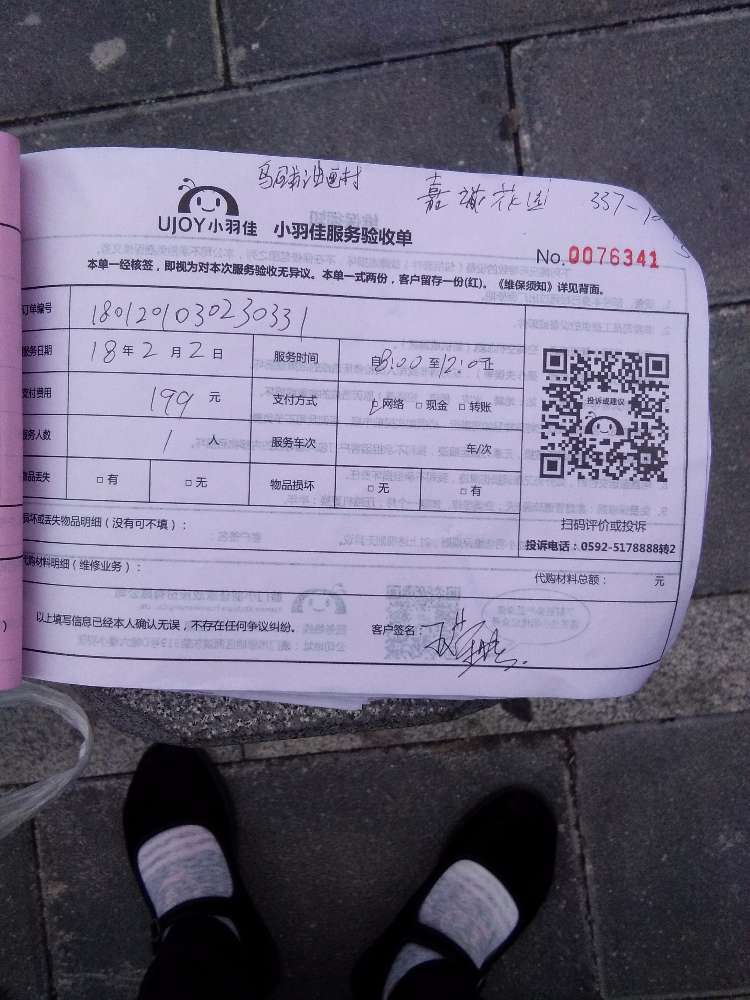 乌石浦油画村 嘉祿花园 337-
UJOY小羽佳 小羽佳服务验收单
No.0076341
本单一经核签，即视为对本次服务验收无异议。本单一式两份，客户留存一份(红)。《维保须知》详见背面。
订单编号 180120103023033​1
服务日期 18年2月2日 服务时间 自8:00至12:0止
支付费用 199元 支付方式 □网络 □现金 □转账
服务人数 1人 服务车次 车/次
物品丢失 □有 □无 物品损坏 □无 □有
投诉或建议
扫码评价或投诉
投诉电话：0592-5178888转2
损坏或丢失物品明细（没有可不填）：
代购材料明细（维修业务）： 代购材料总额： 元
以上填写信息已经本人确认无误，不存在任何争议纠纷。 客户签名：